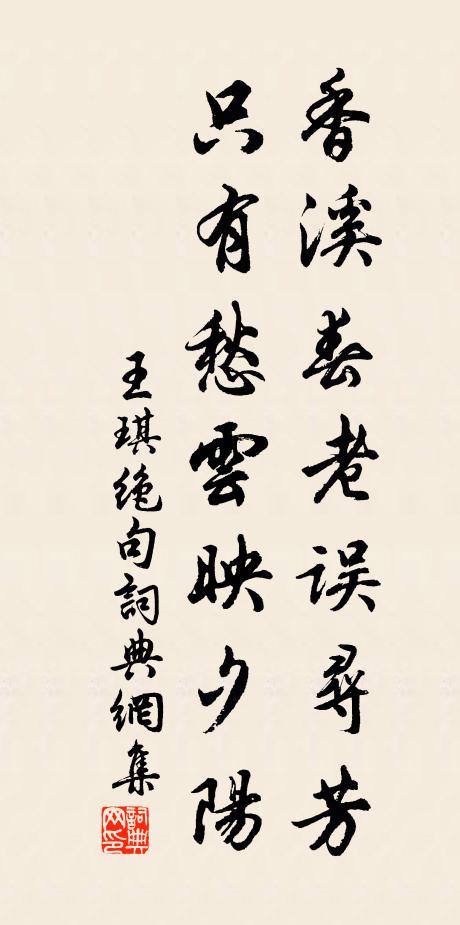 香溪春老误尋芳
只有愁雲映夕陽
王琪绝句詞典網集
詞典网印